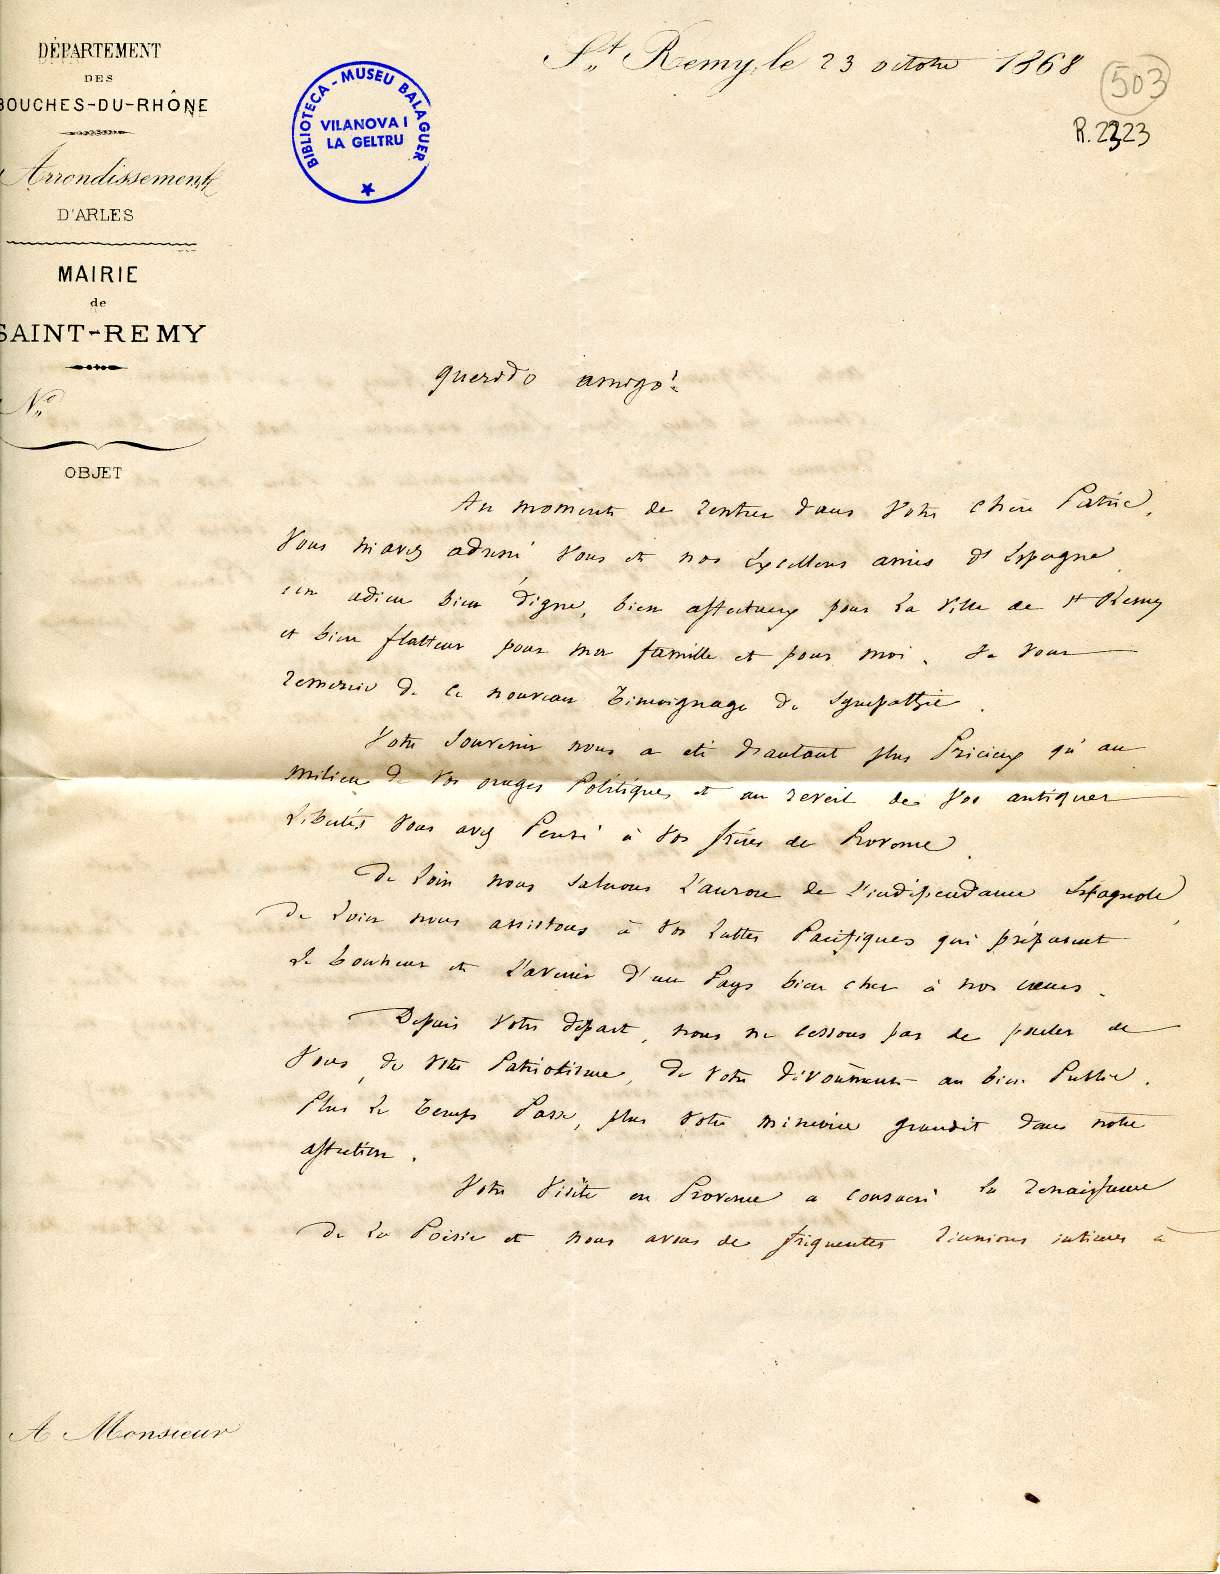 DÉPARTEMENT
DES
BOUCHES-DU-RHÔNE
Arrondissement
D'ARLES
MAIRIE
de
SAINT-REMY
N°
OBJET
BIBLIOTECA - MUSEU BALAGUER
VILANOVA I
LA GELTRU
St Remy, le 23 octobre 1868
503
R. 2323
querido amigo:
Au moment de rentrer dans votre chère Patrie,
Vous m'avez adressé vous et nos Excellens amis d'Espagne
un adieu bien digne, bien affectueux pour la ville de St Remy
et bien flatteur pour ma famille et pour moi. Je vous
remercie de ce nouveau Témoignage de sympathie.
Votre souvenir nous a été d'autant plus Précieux qu'au
milieu de vos orages Politiques et au reveil de vos antiques
Libertés vous avez Pensé à vos frères de Provence.
De Loin nous saluons L'aurore de L'indépendance Espagnole,
de Loin nous assistons à vos Luttes Pacifiques qui préparent
Le bonheur et L'avenir d'un Pays bien cher à nos cœurs.
Depuis votre départ, nous ne cessons pas de parler de
Vous, de votre Patriotisme, de votre dévoûment au bien Public.
Plus Le Temps Passe, plus votre mémoire grandit dans notre
affection.
Votre Visite en Provence a consacré la renaissance
de La Poésie et nous avons de fréquentes réunions intimes à
A Monsieur